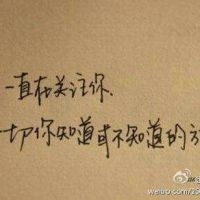 一直在关注你.
一切你知道或不知道的方
weibo.com/25